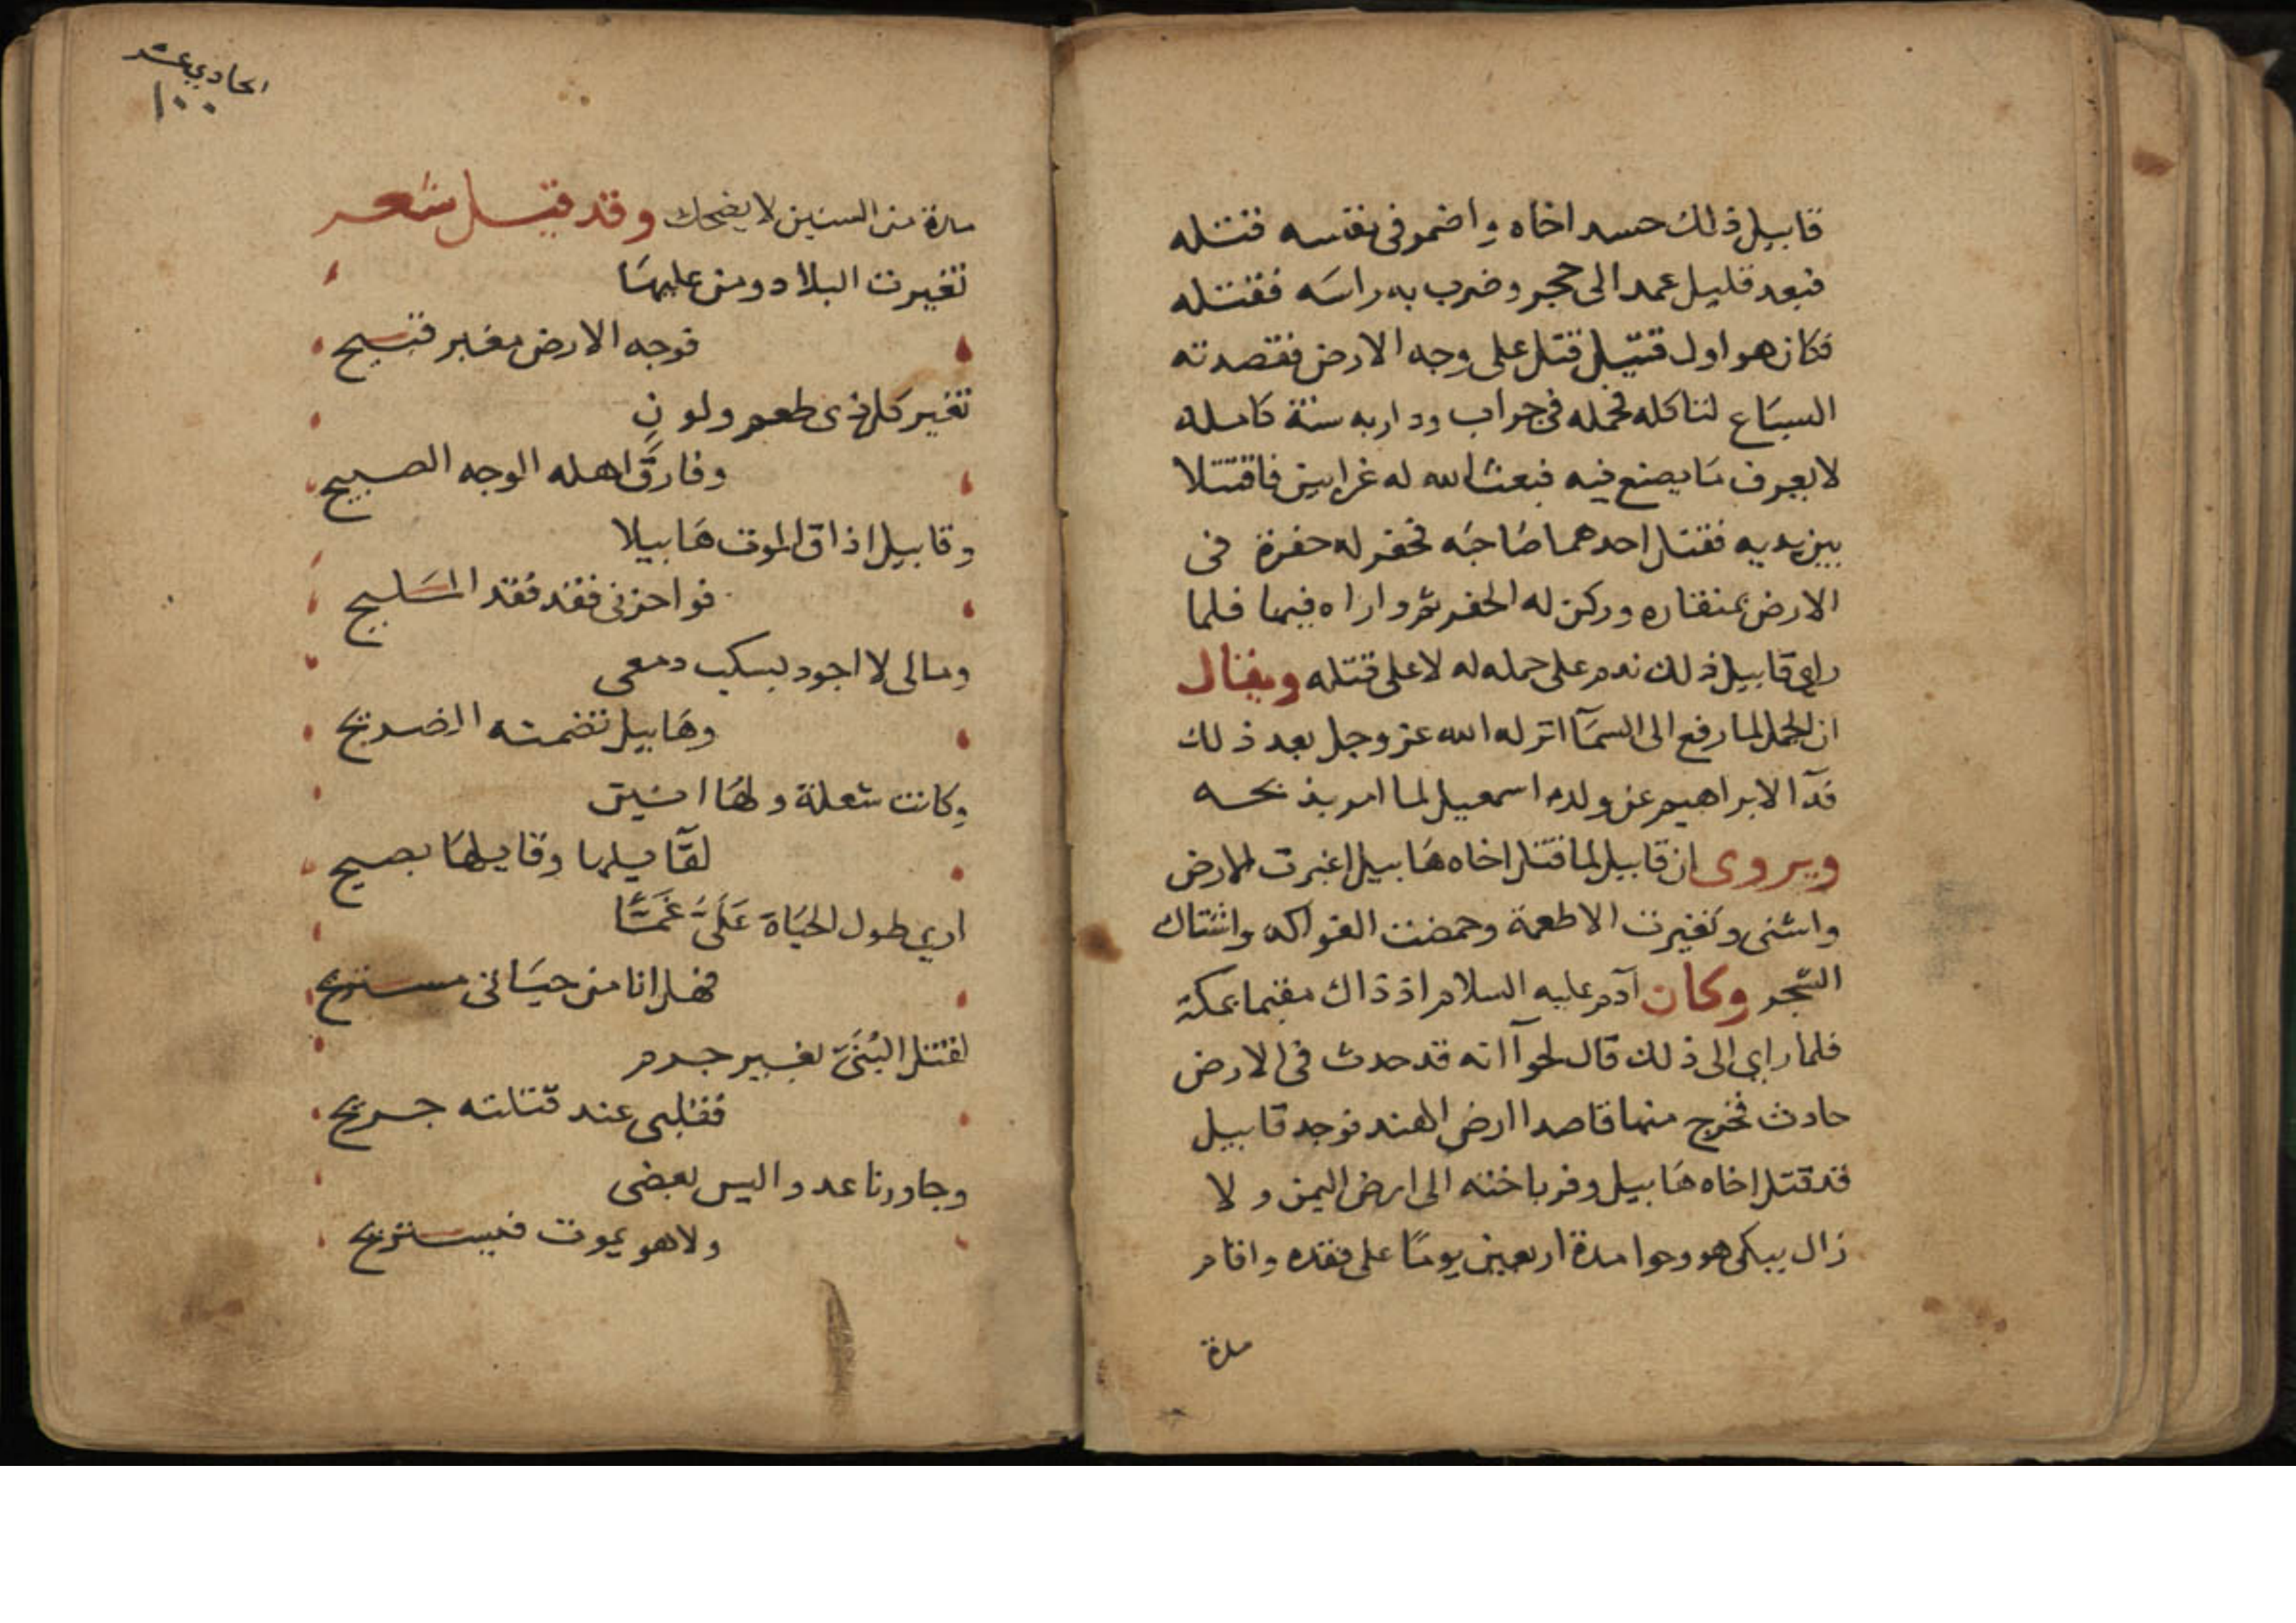 قابيل ذلك حسد اخاه واضمر فى نفسه قتله
فبعد قليل عمد الى حجر وضرب به راسه فقتله
فكان هو اول قتيل قتل على وجه الارض فقصدته
السباع لتاكله فحمله فى جراب ودار به سنة كامله
لا يعرف ما يصنع فيه فبعث الله له غرابين فاقتتلا
بين يديه فقتل احدهما صاحبه فحفر له حفرة فى
الارض بمنقاره وركن له الحفر ثم واراه فيها فلما
راى قابيل ذلك ندم على حمله له لا على قتله ويقال
ان الحمل لما رفع الى السمآ انزله الله عز وجل بعد ذلك
فدآ لابراهيم عن ولده اسمعيل لما امر بذبحه
ويروى ان قابيل لما قتل اخاه هابيل اغبرت الارض
وتغيرت الاطعمة وحمضت الفواكه واشتاك
الشجر وكان آدم عليه السلام اذ ذاك مقيما بمكة
فلما راى الى ذلك قال لحوآ انه قد حدث فى الارض
حادث فخرج منها قاصدا ارض الهند فوجد قابيل
قد قتل اخاه هابيل وفر باخته الى ارض اليمن ولا
زال يبكى هو وحوا مدة اربعين يوما على فقده واقام
مدة
الحادي عشر
١٠٠
مدة من السنين لا يضحك وقد قيل شعر
تغيرت البلاد ومن عليها
فوجه الارض مغبر قبيح
تغير كل ذى طعم ولون
وفارق اهله الوجه الصبيح
وقابيل اذاق الموت هابيلا
فواحزنى فقد فقد المليح
ومالى لا اجود بسكب دمعى
وهابيل تضمنه الضريح
وكانت شعلة ولها
وقابلها يصيح
اري طول الحياة على غما
فهل انا من حياتى مستريح
لقتل البنى بغير جرم
فقلبى عند قتلته جريح
وجاورنا عدو اليس بعضى
ولا هو يموت فيستريح